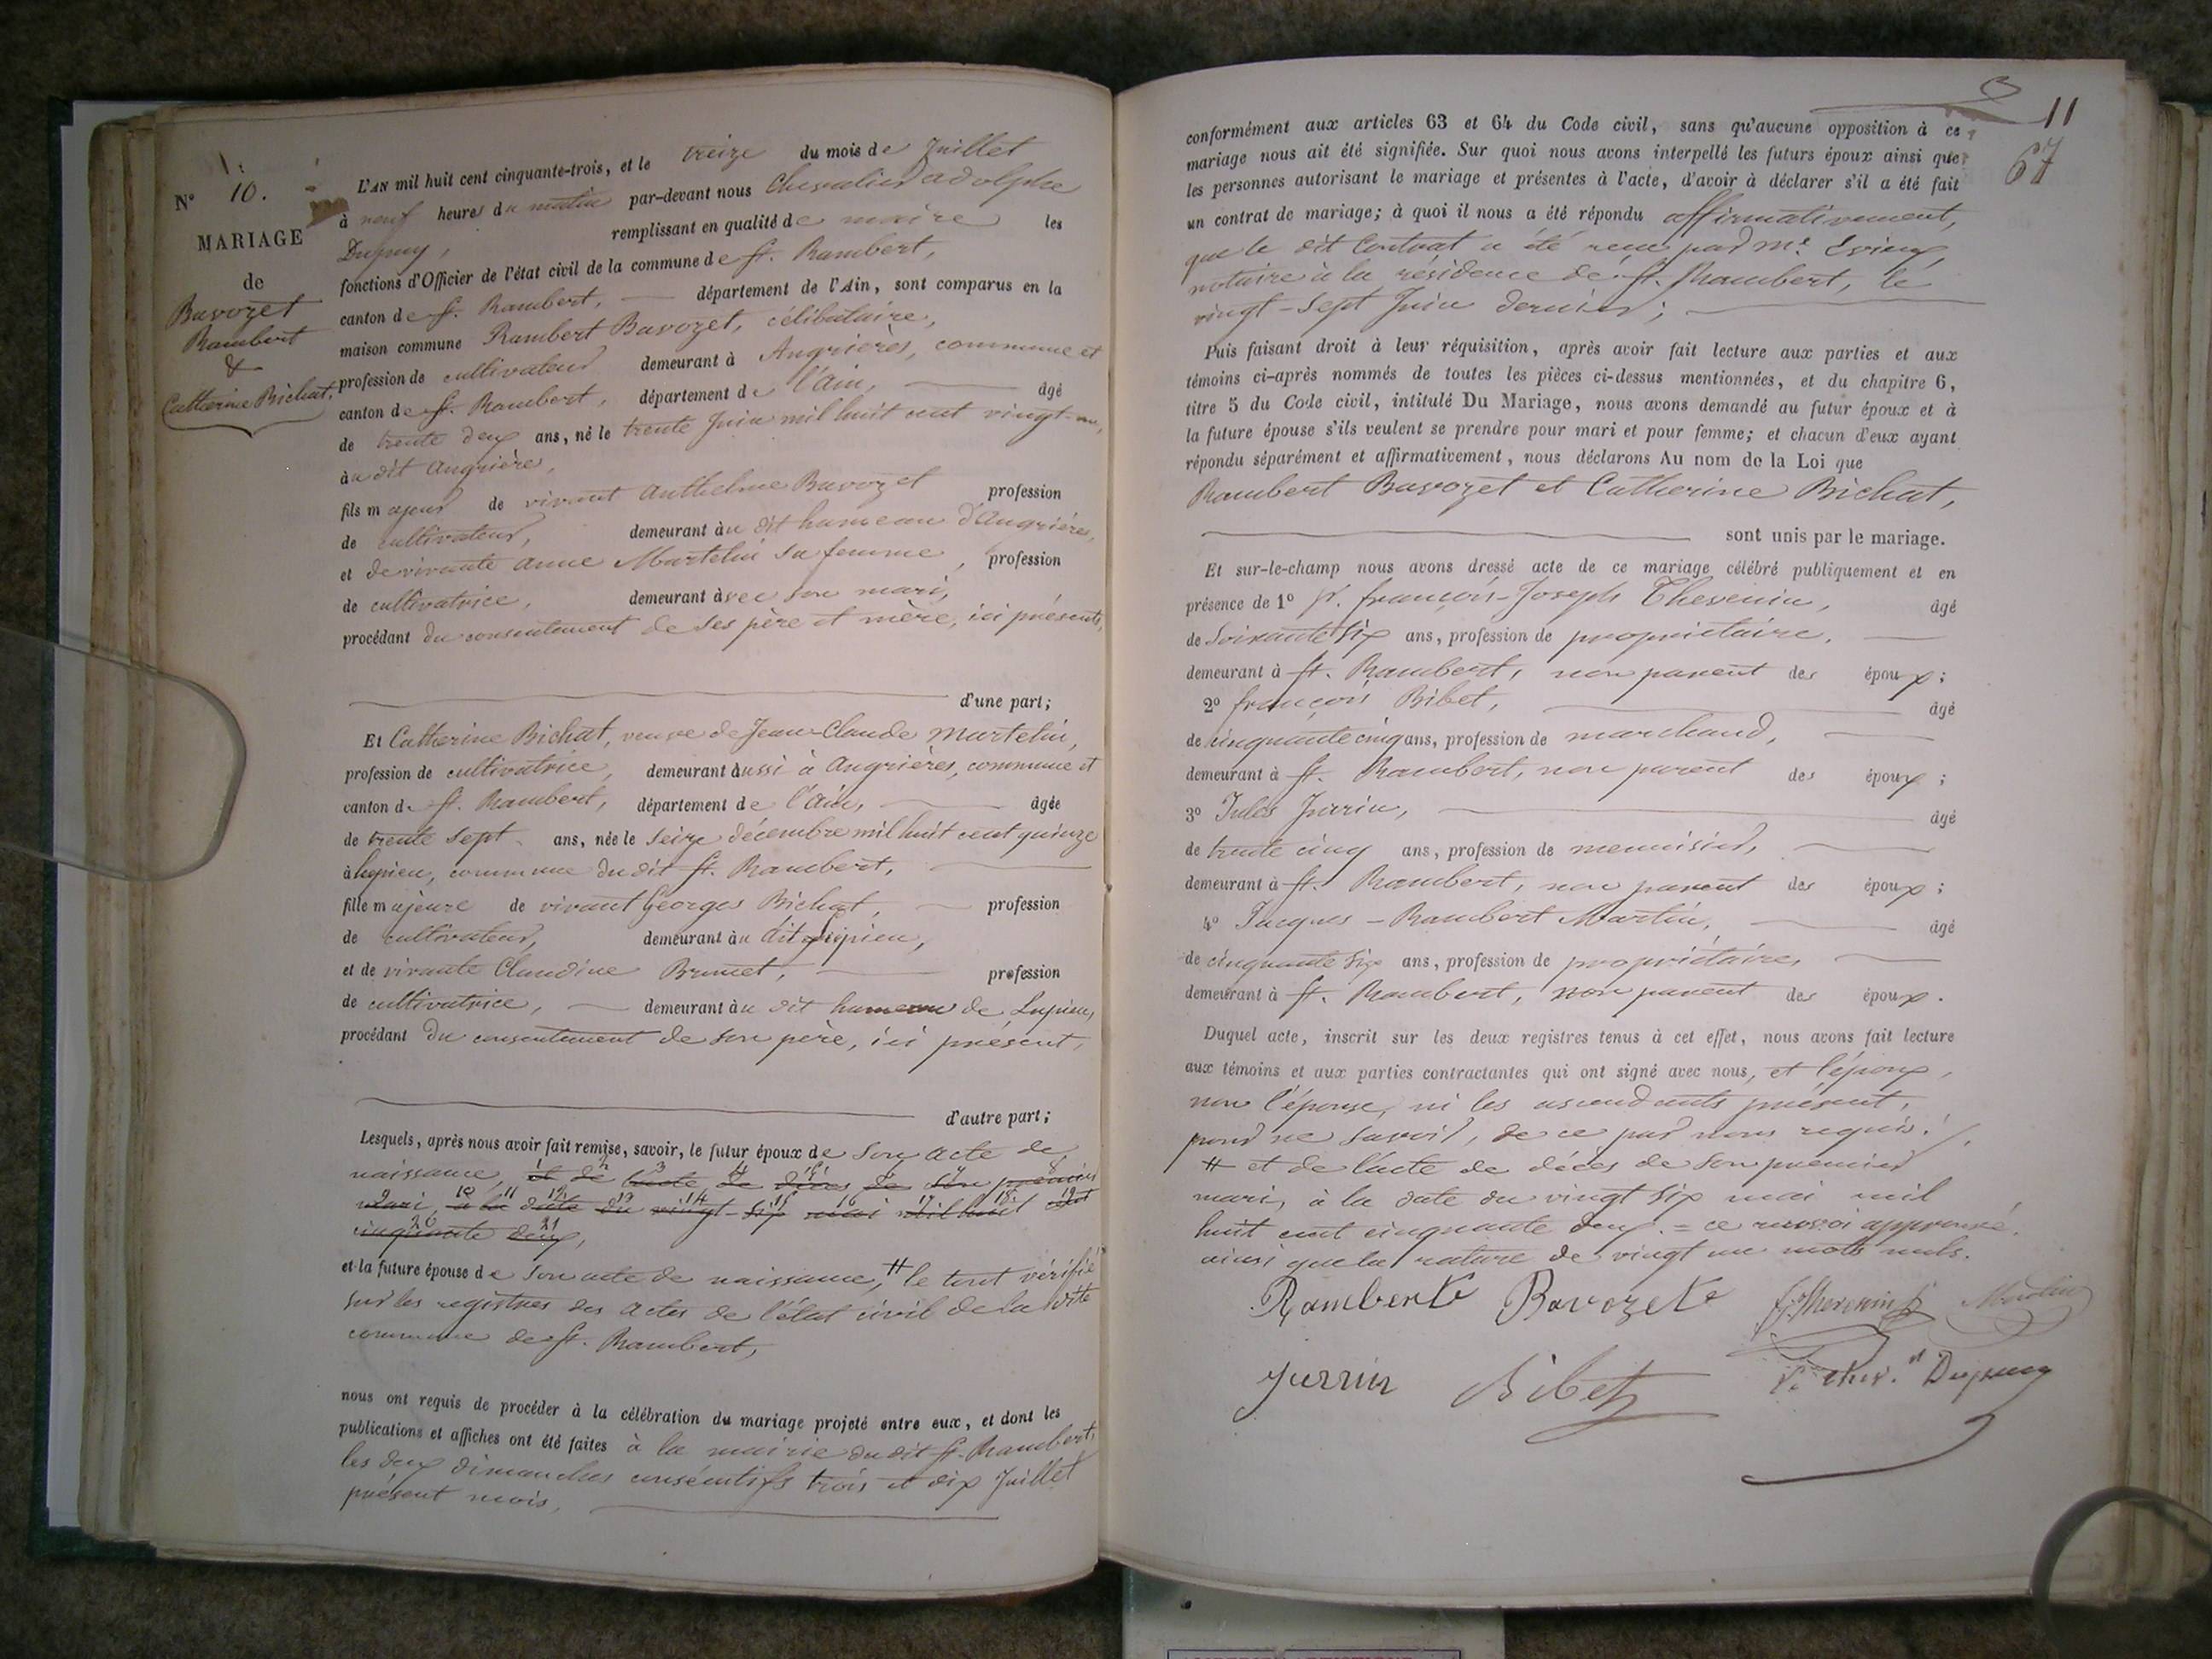 N° 10.
MARIAGE
de
Bavozet
Rambert
&
Catherine Bichat.
L'AN mil huit cent cinquante-trois, et le treize du mois de Juillet
à neuf heures du matin par-devant nous Chevalier Adolphe
Dupuy, remplissant en qualité de maire les
fonctions d'Officier de l'état civil de la commune de St. Rambert,
canton de St. Rambert, département de l'Ain, sont comparus en la
maison commune Rambert Bavozet, célibataire,
profession de cultivateur demeurant à Angrières, commune et
canton de St. Rambert, département de l'Ain, âgé
de trente deux ans, né le trente Juin mil huit cent vingt-un,
à u dit Angrière,
fils majeur de vivant Anthelme Bavozet profession
de cultivateur, demeurant àu dit hameau d'Angrières,
et de vivante Anne Martelin sa femme, profession
de cultivatrice, demeurant àvec son mari,
procédant du consentement de ses père et mère, ici présents,
d'une part;
Et Catherine Bichat, veuve de Jean-Claude Martelin,
profession de cultivatrice, demeurant àussi à Angrières, commune et
canton de St. Rambert, département de l'Ain, âgée
de trente sept ans, née le seize décembre mil huit cent quinze
à Lupieu, commune du dit St. Rambert,
fille majeure de vivant Georges Bichat, profession
de cultivateur, demeurant àu dit Lupieu,
et de vivante Claudine Brunet, profession
de cultivatrice, demeurant àu dit hameau de Lupieu,
procédant du consentement de son père, ici présent,
d'autre part;
Lesquels, après nous avoir fait remise, savoir, le futur époux de son acte de
naissance, et de l'acte de décès de son premier
mari, à la date du vingt-six mai mil huit cent
cinquante deux,
et la future épouse de son acte de naissance, # le tout vérifié
sur les registres des actes de l'état civil de la dite
commune de St. Rambert,
nous ont requis de procéder à la célébration du mariage projeté entre eux, et dont les
publications et affiches ont été faites à la mairie du dit St. Rambert,
les deux dimanches consécutifs trois et dix Juillet
présent mois,
11
67
conformément aux articles 63 et 64 du Code civil, sans qu'aucune opposition à ce
mariage nous ait été signifiée. Sur quoi nous avons interpellé les futurs époux ainsi que
les personnes autorisant le mariage et présentes à l'acte, d'avoir à déclarer s'il a été fait
un contrat de mariage; à quoi il nous a été répondu affirmativement,
que le dit Contrat a été reçu par Me.
notaire à la résidence de St. Rambert, le
vingt-sept Juin dernier;
Puis faisant droit à leur réquisition, après avoir fait lecture aux parties et aux
témoins ci-après nommés de toutes les pièces ci-dessus mentionnées, et du chapitre 6,
titre 5 du Code civil, intitulé Du Mariage, nous avons demandé au futur époux et à
la future épouse s'ils veulent se prendre pour mari et pour femme; et chacun d'eux ayant
répondu séparément et affirmativement, nous déclarons Au nom de la Loi que
Rambert Bavozet et Catherine Bichat,
sont unis par le mariage.
Et sur-le-champ nous avons dressé acte de ce mariage célébré publiquement et en
présence de 1° Sr. françois-Joseph Thevenin, âgé
de Soixante Six ans, profession de propriétaire,
demeurant à St. Rambert, non parent des époux;
2° françois Bibet, âgé
de cinquante cinq ans, profession de marchand,
demeurant à St. Rambert, non parent des époux;
3° Jules Juvrin, âgé
de trente cinq ans, profession de menuisier,
demeurant à St. Rambert, non parent des époux;
4° Jacques-Rambert Martin, âgé
de cinquante Six ans, profession de propriétaire,
demeurant à St. Rambert, non parent des époux.
Duquel acte, inscrit sur les deux registres tenus à cet effet, nous avons fait lecture
aux témoins et aux parties contractantes qui ont signé avec nous, et l'époux,
non l'épouse, ni les ascendants présent,
pour ne savoir, de ce par nous requis./.
# et de l'acte de décès de son premier
mari, à la date du vingt six mai mil
huit cent cinquante deux. = ce renvoi approuvé,
ainsi que la rature de vingt un mots nuls.
Rambert Bavozet f. Jh. Thevenin Martin
Juvrin Bibet Chev. Dupuy